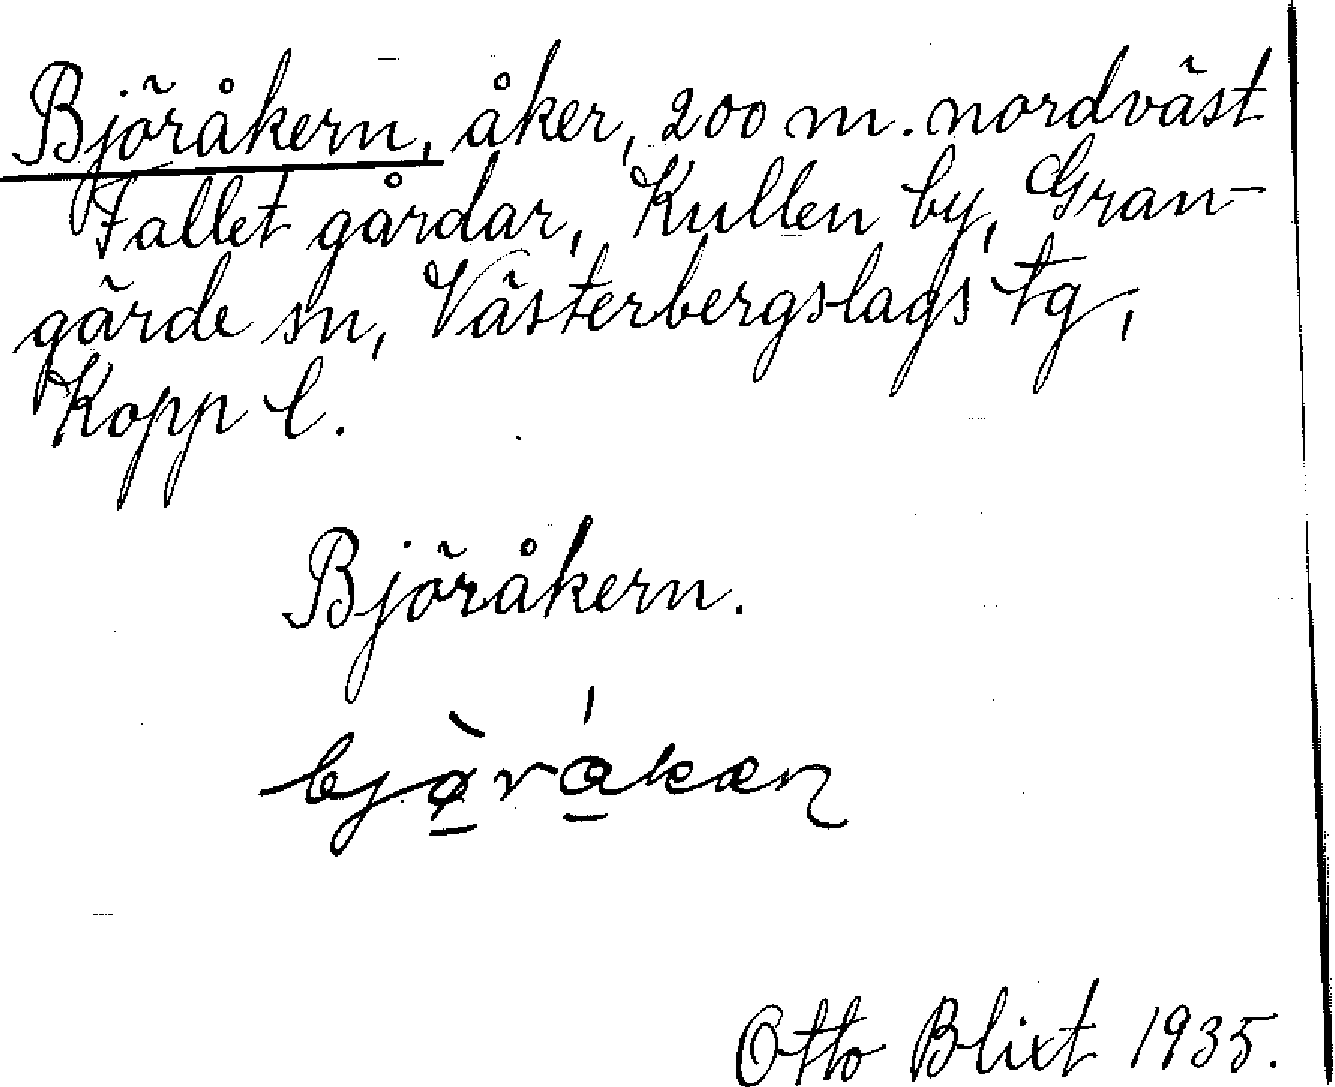 Björåkern, åker, 200 m. nordväst
Fallet gårdar, Kullen by, Gran-
gärde sn, Västerbergslags tg,
Kopp l.
Björåkern.
bjø̀råkæn
Otto Blixt 1935.